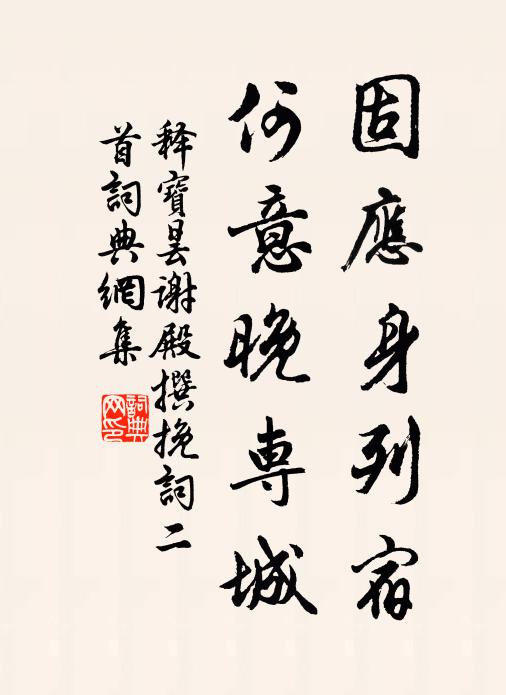 固應身列宿
何意晚専城
释寶曇谢殿撰挽詞二
首詞典網集
詞典
网印